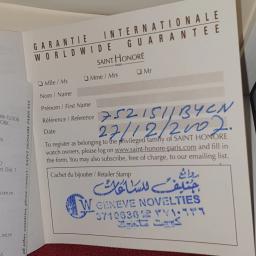 GARANTIE INTERNATIONALE
WORLDWIDE GUARANTEE
SAINT HONORE
PARIS
Mlle / Ms
Mme / Mrs
Mr
Nom / Name
Prénom / First Name
Référence / Reference
752151/BYCN
Date
27/12/2002
To register as belonging to the privileged family of SAINT HONORE
watch owners, please log on www.saint-honore-paris.com and fill in
the form. You may also subscribe, free of charge, to our emailing list.
Cachet du bijoutier / Retailer Stamp
جنيف للساعات
GENEVE NOVELTIES